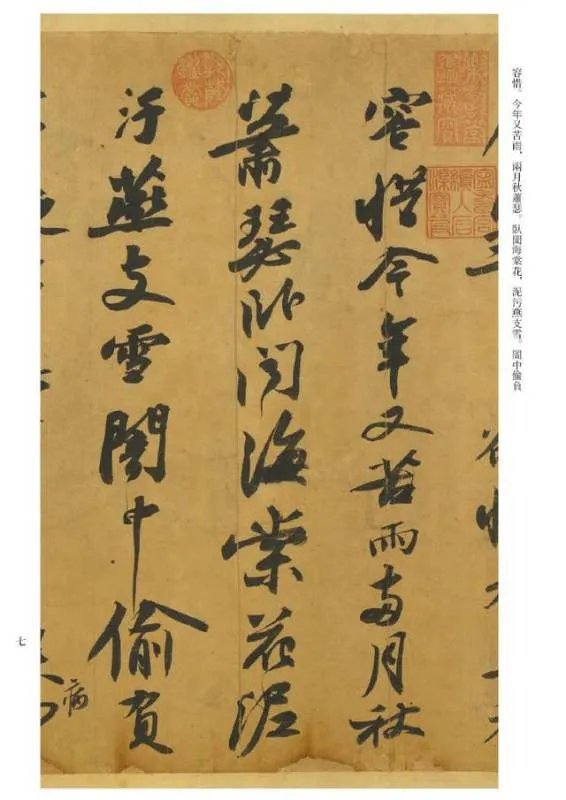 容惜。今年又苦雨，兩月秋蕭瑟。臥聞海棠花，泥污燕支雪。闇中偷負
容惜今年又苦雨兩月秋
蕭瑟臥聞海棠花泥
汙燕支雪闇中偷負
病
七